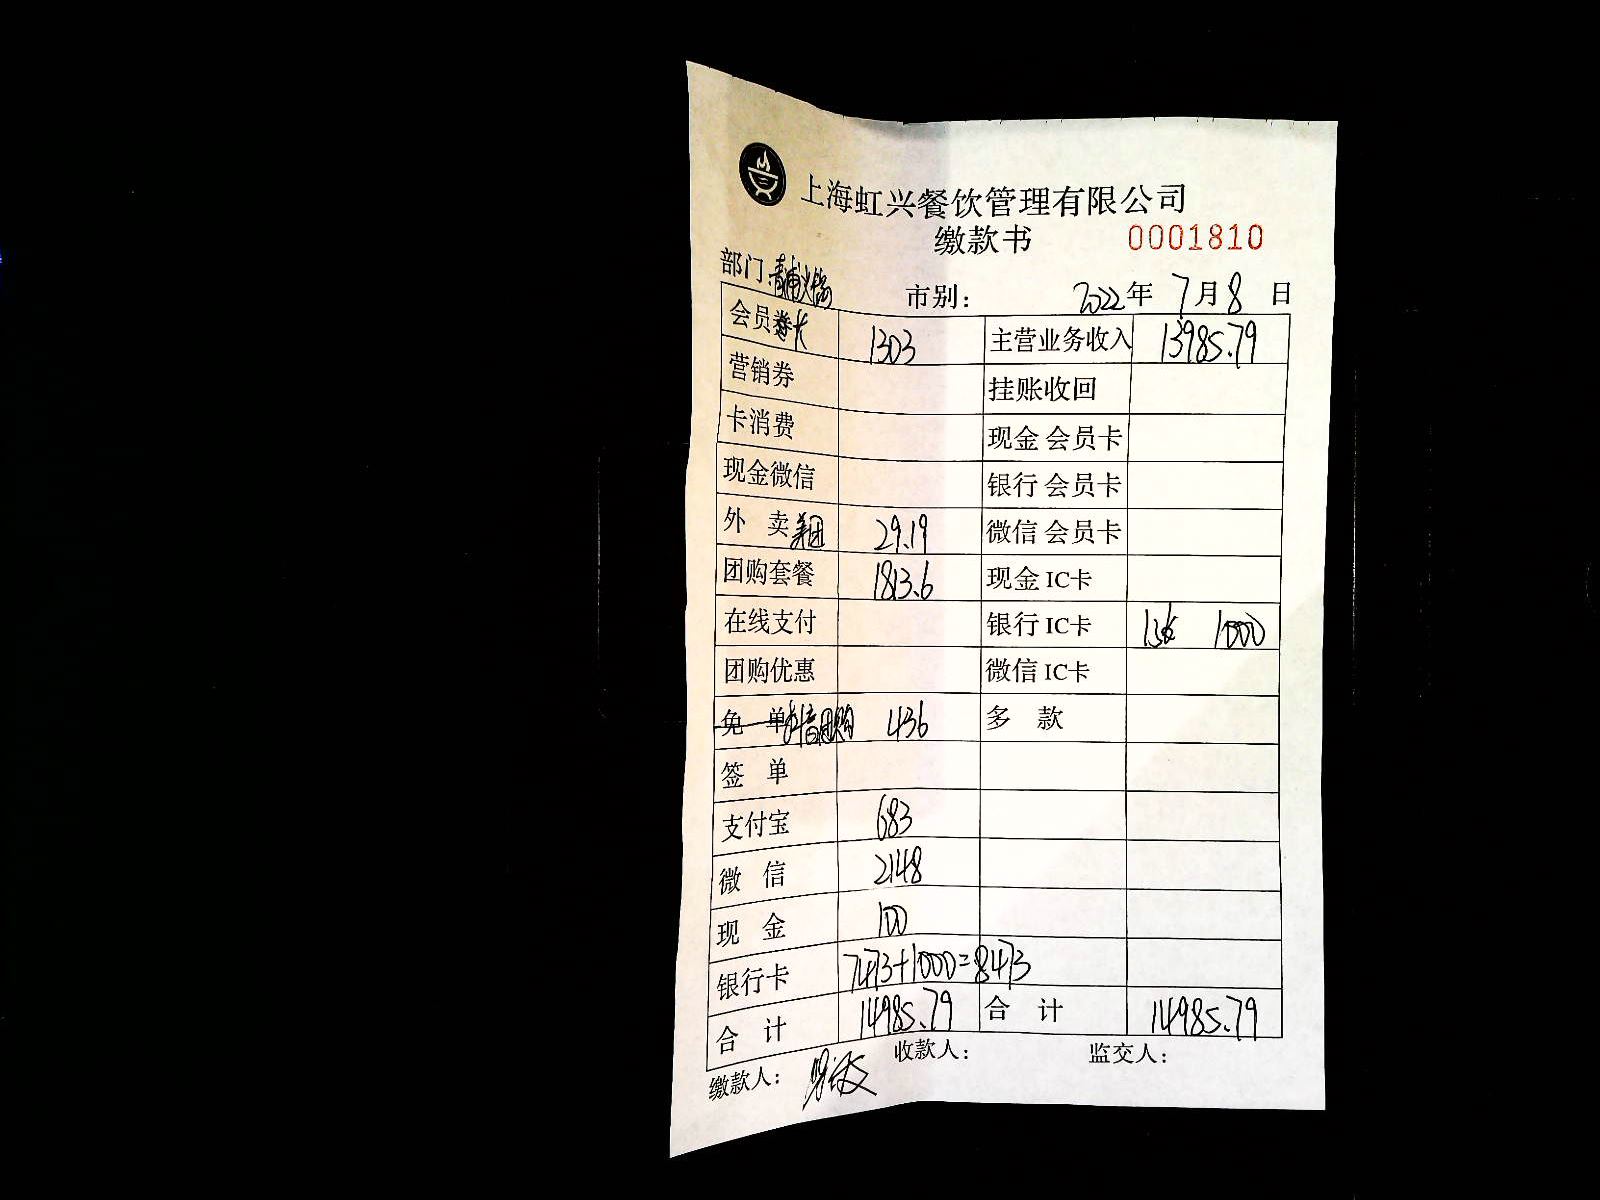 上海虹兴餐饮管理有限公司
缴款书 0001810
部门:青浦火锅 市别: 2022年7月8日
会员 1303 主营业务收入 13985.79
营销券 挂账收回
卡消费 现金 会员卡
现金微信 银行 会员卡
外 卖 美团 29.19 微信 会员卡
团购套餐 1813.6 现金 IC卡
在线支付 银行 IC卡 1000
团购优惠 微信 IC卡
免 单 抖音团购 436 多 款
签 单
支付宝 683
微 信 2148
现 金 100
银行卡 7473+1000=8473
合 计 14985.79 合 计 14985.79
缴款人: 收款人: 监交人: